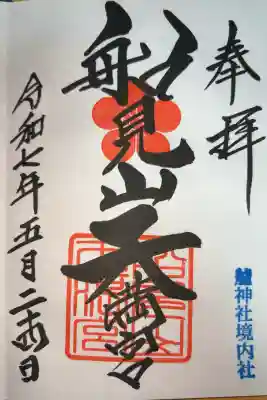 奉拝
船見山天満宮
神社境内社
令和七年五月二十四日